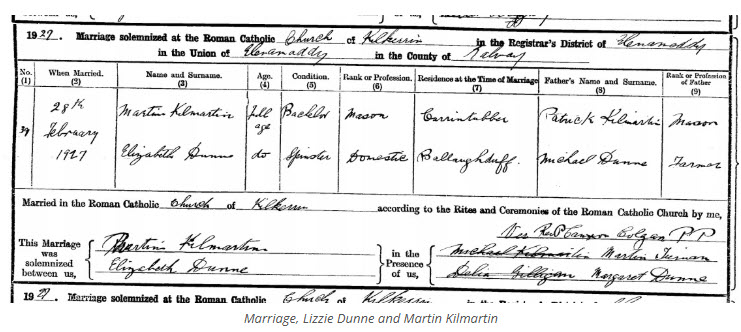 1927. Marriage solemnized at the Roman Catholic Church of Kilkerrin in the Registrar's District of Glenamaddy
in the Union of Glenamaddy in the County of Galway
No. (1) When Married. (2) Name and Surname. (3) Age. (4) Condition. (5) Rank or Profession. (6) Residence at the Time of Marriage (7) Father's Name and Surname. (8) Rank or Profession of Father (9)
28th February 1927 Martin Kilmartin Full age Bachelor Mason Carrintubber Patrick Kilmartin Mason
Elizabeth Dunne do Spinster Domestic Ballaughduff. Michael Dunne Farmer
Married in the Roman Catholic Church of Kilkerrin according to the Rites and Ceremonies of the Roman Catholic Church by me,
Canon Colgan PP
This Marriage was solemnized between us, Martin Kilmartin in the Presence of us, Michael Kilmartin Martin
Elizabeth Dunne Delia Gilligan Margaret Dunne
1927 Marriage solemnized at the Roman Catholic Church of Kilkerrin in the Registrar's District of
Marriage, Lizzie Dunne and Martin Kilmartin